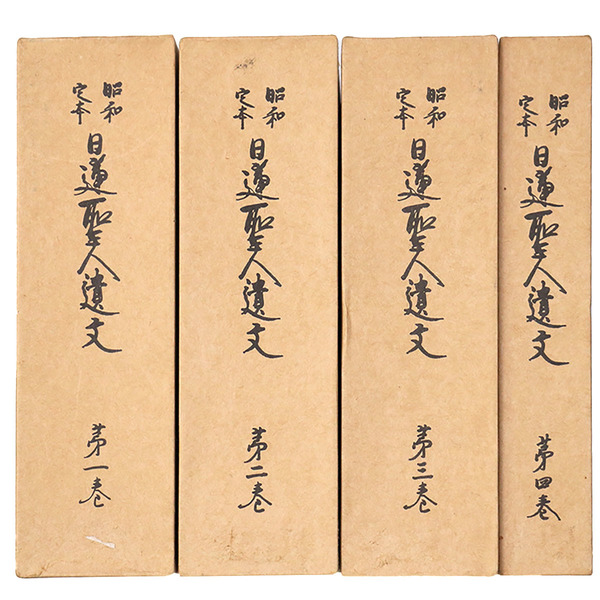 昭和
定本
日蓮聖人遺文
第一巻
昭和
定本
日蓮聖人遺文
第二巻
昭和
定本
日蓮聖人遺文
第三巻
昭和
定本
日蓮聖人遺文
第四巻